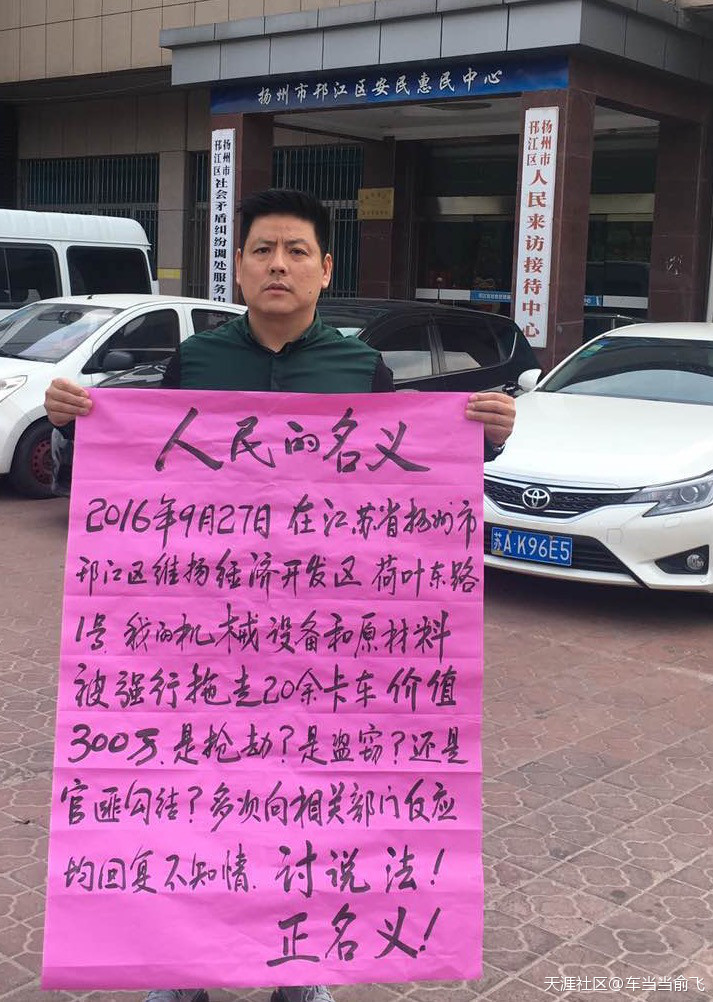 扬州市邗江区安民惠民中心
扬州市
邗江区
社会矛盾纠纷调处服务中
扬州市
邗江区
人民来访接待中心
人民的名义
2016年9月27日 在江苏省扬州市
邗江区维扬经济开发区 荷叶东路
1号.我的机械设备和原材料
被强行拖走20余卡车 价值
300万.是抢劫？是盗窃？还是
官匪勾结？多次向相关部门反应
均回复不知情.讨说法！
正名义！
苏A·K96E5
天涯社区@车当当俞飞